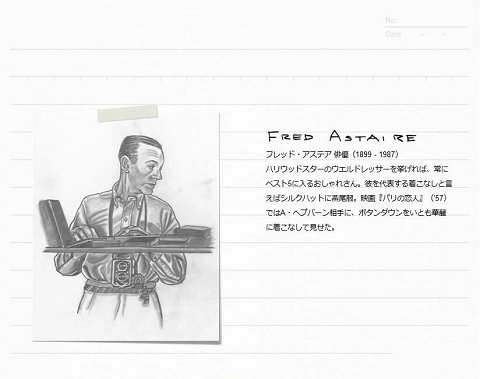 No.
Date ・ ・
FRED ASTAIRE
フレッド・アステア 俳優（1899 - 1987）
ハリウッドスターのウエルドレッサーを挙げれば、常に
ベスト5に入るおしゃれさん。彼を代表する着こなしと言
えばシルクハットに燕尾服。映画『パリの恋人』（'57）
ではA・ヘプバーン相手に、ボタンダウンをいとも華麗
に着こなして見せた。